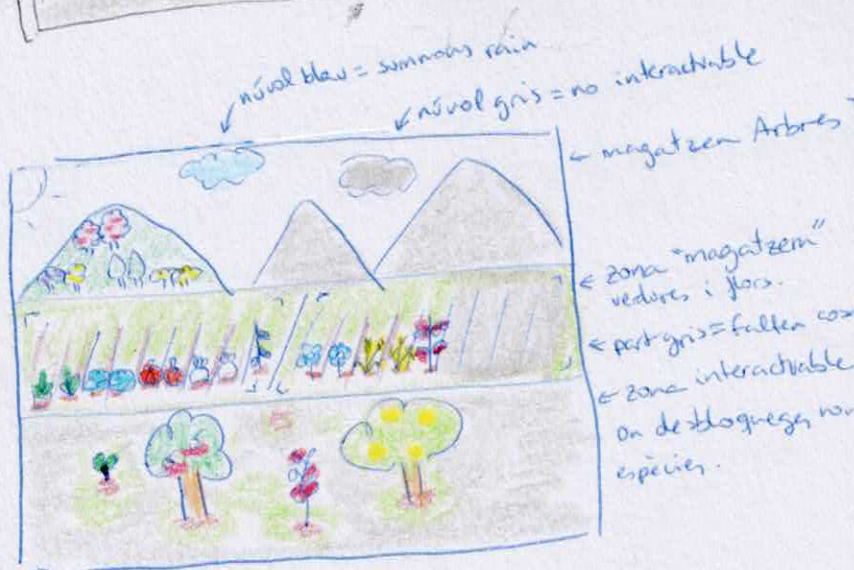 núvol blau = summons rain
núvol gris = no interactuable
magatzem Arbres
zona "magatzem"
verdures i flors.
part gris = falten
zona interactuable
on desbloqueges
espècies.